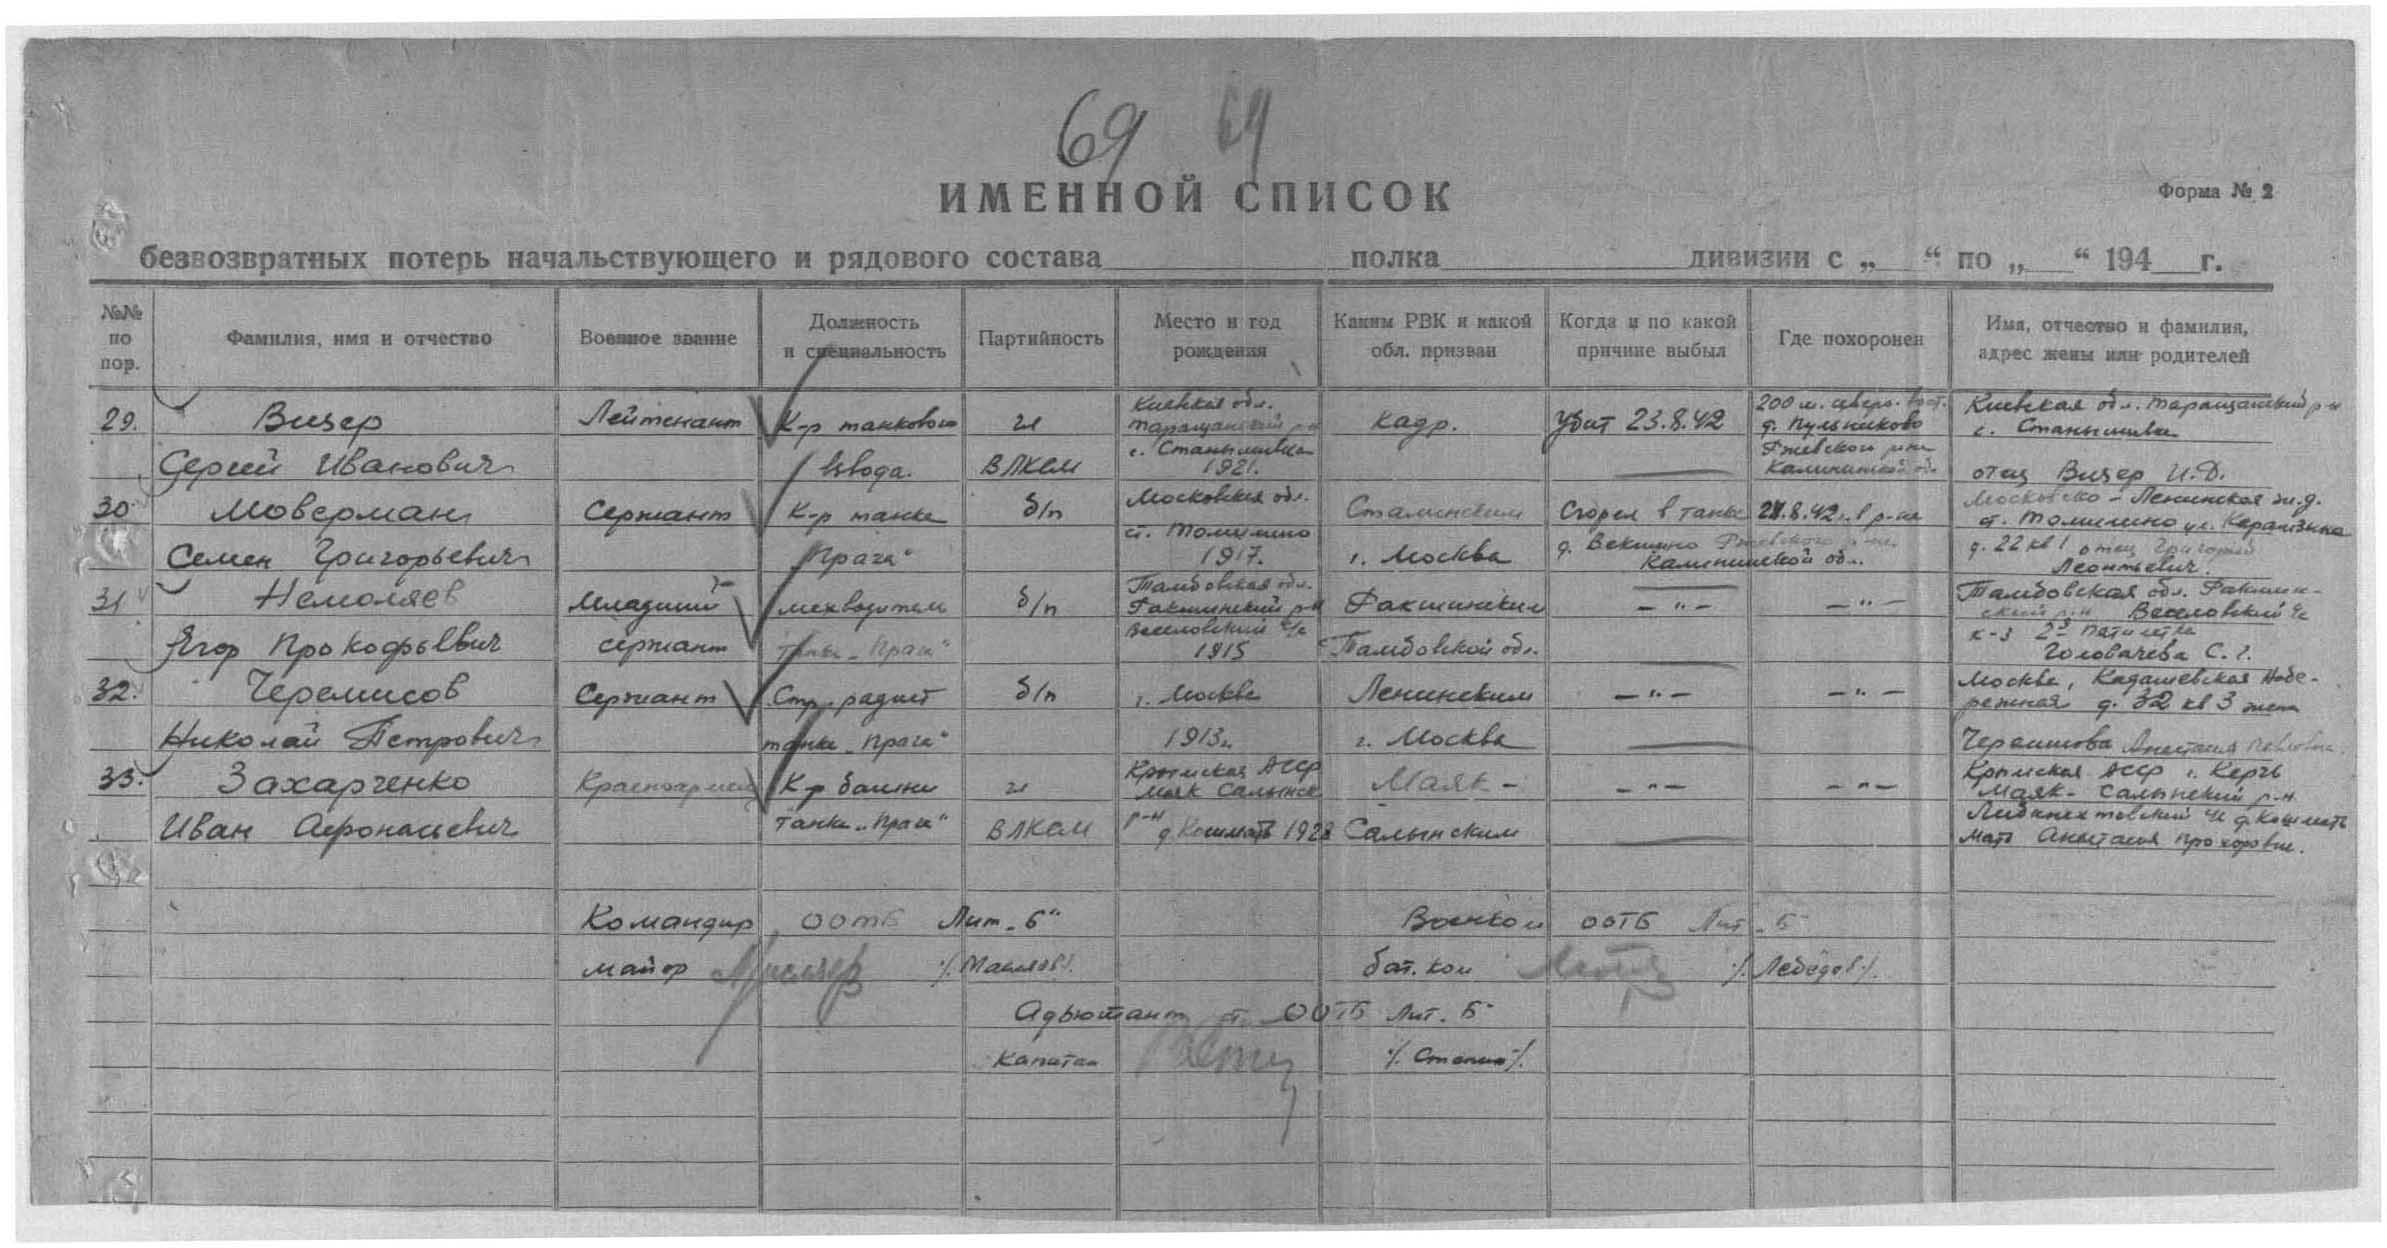 69 69
ИМЕННОЙ СПИСОК
Форма № 2
безвозвратных потерь начальствующего и рядового состава полка дивизии с „ “ по „ “ 194 г.
№№ по пор.
Фамилия, имя и отчество
Военное звание
Должность и специальность
Партийность
Место и год рождения
Каким РВК и какой обл. призван
Когда и по какой причине выбыл
Где похоронен
Имя, отчество и фамилия, адрес жены или родителей
29. Вицер Лейтенант К-р танкового чл Киевская обл. Таращанский р-н Кадр. Убит 23.8.42 200 м. северо-вост. д. Пульниково Киевская обл. Таращанский р-н
Сергей Иванович взвода. ВЛКСМ 1921. Ржевского р-на Калининской обл. отец Вицер И.Д.
30 Моверман Сержант К-р танка б/п Московская обл. Сталинским Сгорел в танке 24.8.42 г. в р-не Московско-Ленинская ж.д.
Семен Григорьевич „Прага“ ст. Томилино 1917. г. Москва д. Векшино Ржевского р-на Калининской обл. ст. Томилино ул. Карамзина д. 22 кв 1 отец Григорий Леонтьевич.
31 Немоляев Младший мехводитель б/п Тамбовская обл. Ракшинский р-н Ракшинским —"— —"— Тамбовская обл. Ракшин-
Егор Прокофьевич сержант танка „Прага“ Веселовский с/с 1915 Тамбовской обл. ский р-н Веселовский с/с к-з 2я пятилетка Головачева С. г.
32. Черемисов Сержант Стр. радист б/п г. Москва Ленинским —"— —"— Москва, Кадашевская Набе-
Николай Петрович танка „Прага“ 1913 г. г. Москва режная д. 32 кв 3 жена Черемисова Анастасия Павловна.
33. Захарченко Красноармеец К-р башни чл Крымская АССР Маяк Салынск Маяк- —"— —"— Крымская АССР г. Керчь
Иван Афонасьевич танка „Прага“ ВЛКСМ р-н Салынским Маяк-Салынский р-н
мать Анастасия Прохоровна.
Командир ООТБ Лит „Б“ Военком ООТБ Лит „Б“
майор бат. ком /Лебедев/.
Адъютант ст. ООТБ Лит. Б“
капитан